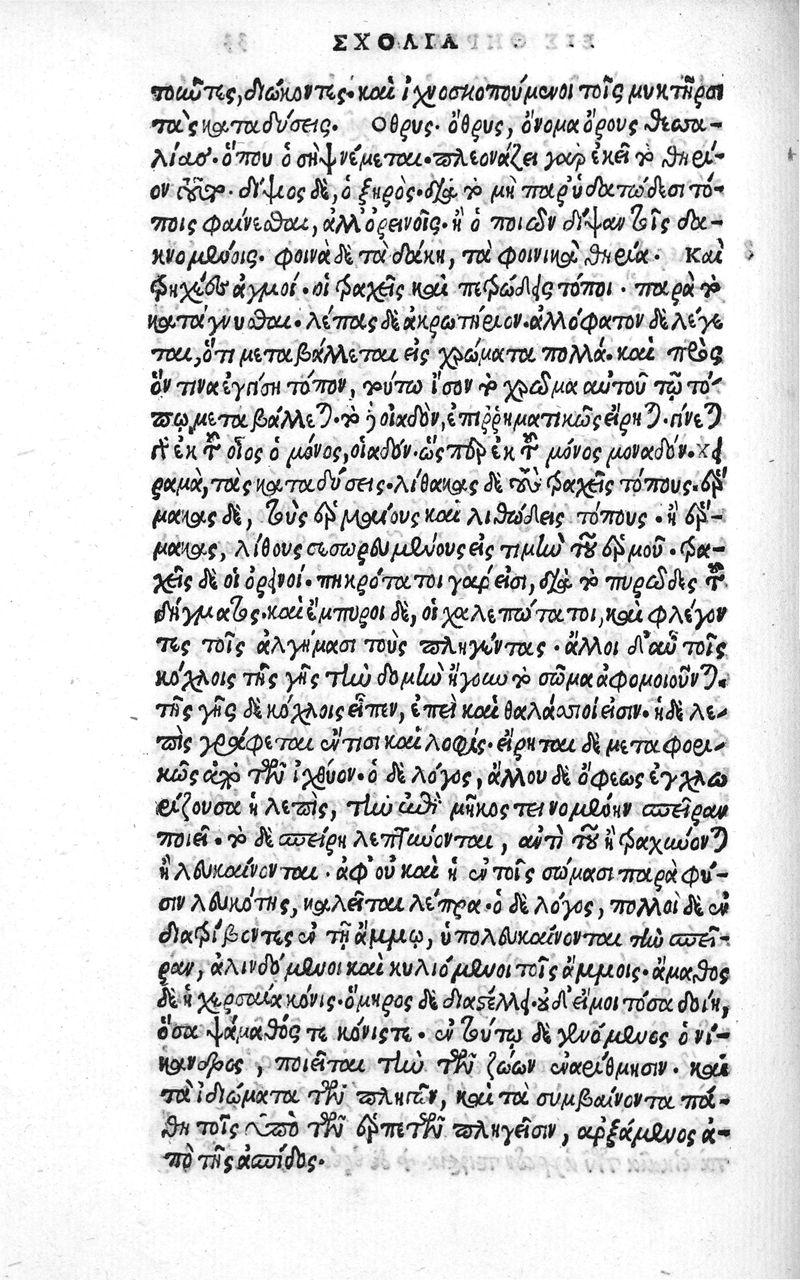 ΣΧΟΛΙΑ
τοιαῦτες, διώκοντες· καὶ ἰχνοσκοπούμενοι τοῖς μυκτῆρσι
τὰς καταδύσεις. Οθρυς· ὄθρυς, ὄνομα ὄρους θεσσα-
λίας· ὅπου ὁ σὴψ νέμεται· πλεονάζει γὰρ ἐκεῖ τὸ θηρί-
ον τοῦτο· δίψιος δὲ, ὁ ξηρὸς· διὰ τὸ μὴ παρ' ὑδατώδεσι τό-
ποις φαίνεσθαι, ἀλλ' ὀρεινοῖς· ἢ ὁ ποιῶν δίψαν τοῖς δα-
κνομένοις. φοινὰ δὲ τὰ δάκη, τὰ φοινικὰ θηρία. Καὶ
τρηχεῖς ἀγμοί· οἱ τραχεῖς καὶ πετρώδεις τόποι· παρὰ τὸ
κατάγνυσθαι· λέπας δὲ ἀκρωτήριον· ἀλλόφατον δὲ λέγε
ται, ὅτι μεταβάλλεται εἰς χρώματα πολλά· καὶ πρὸς
ὅν τινα ἐγγίσῃ τόπον, τούτῳ ἴσον τὸ χρῶμα αὐτοῦ τῷ τό-
πῳ μεταβάλλεται· τὸ δὲ οἰαδὸν, ἐπιῤῥηματικῶς εἴρηται· γίνεται
δὲ ἐκ τοῦ οἶος ὁ μόνος, οἰαδόν· ὥσπερ ἐκ τοῦ μόνος μοναδόν· χη
ραμὰ, τὰς καταδύσεις· λίθακας δὲ τοὺς τραχεῖς τόπους· ἑρ-
μακας δὲ, τοὺς ἑρμαίους καὶ λιθώδεις τόπους· ἢ ἕρ-
μακας, λίθους σεσωρευμένους εἰς τιμὴν τοῦ ἑρμοῦ· τρα-
χεῖς δὲ οἱ ὀρεινοί· πικρότατοι γάρ εἰσι, διὰ τὸ πυρῶδες τοῦ
δήγματος· καὶ ἔμπυροι δὲ, οἱ χαλεπώτατοι, καὶ φλέγον
τες τοῖς ἀλγήμασι τοὺς πληγέντας· ἄλλοι δ' αὖ τοῖς
κόχλοις τῆς γῆς τὴν δομὴν ἤγουν τὸ σῶμα ἀφομοιοῦνται.
τῆς γῆς δὲ κόχλοις εἶπεν, ἐπεὶ καὶ θαλάσσιοί εἰσιν· ἡ δὲ λε-
πὶς γράφεται ἔν τισι καὶ λοφίς· εἴρηται δὲ μεταφορι-
κῶς ἀπὸ τῶν ἰχθύων· ὁ δὲ λόγος, ἄλλου δὲ ὄφεως ἐγχλω
ρίζουσα ἡ λεπὶς, τὴν ἐπὶ μῆκος τεινομένην σπεῖραν
ποιεῖ· τὸ δὲ σπείρῃ λεπρύνονται, ἀντὶ τοῦ ἢ τραχύνονται
ἢ λευκαίνονται· ἀφ' οὗ καὶ ἡ ἐν τοῖς σώμασι παρὰ φύ-
σιν λευκότης, καλεῖται λέπρα· ὁ δὲ λόγος, πολλοὶ δὲ ἐν
διατρίβοντες ἐν τῇ ἄμμῳ, ὑπολευκαίνονται τὴν σπεῖ-
ραν, ἀλινδούμενοι καὶ κυλιόμενοι τοῖς ἄμμοις· ἄμαθος
δὲ ἡ χερσαία κόνις· ὅμηρος δὲ διαστέλλει· οὐδ' εἴ μοι τόσα δοίη,
ὅσα ψάμαθός τε κόνις τε· ἐν τούτῳ δὲ γενόμενος ὁ νί-
κανδρος, ποιεῖται τὴν τῶν ζώων ἐναρίθμησιν· καὶ
τὰ ἰδιώματα τῶν πληγῶν, καὶ τὰ συμβαίνοντα πά-
θη τοῖς ὑπὸ τῶν ἑρπετῶν πληγεῖσιν, ἀρξάμενος ἀ-
πὸ τῆς ἀσπίδος.